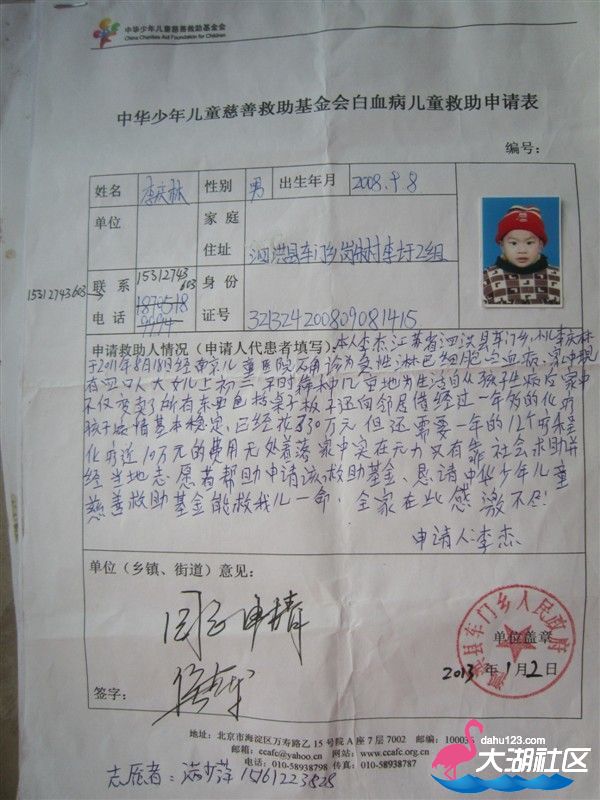 中华少年儿童慈善救助基金会
China Charities Aid Foundation for Children
中华少年儿童慈善救助基金会白血病儿童救助申请表
编号：
姓名 李庆林 性别 男 出生年月 2008.9.8
单位 家庭住址 泗洪县车门乡岗树村李圩2组
15312743603
联系电话 15312743603 身份证号 321324200809081415
申请救助人情况（申请人代患者填写）：本人李杰，江苏省泗洪县车门乡，小儿李庆林
于2011年8月18日经南京儿童医院确诊为急性淋巴细胞白血病、家中现
有四口人大女儿上初三、平时靠种几亩地为生活自从孩子生病后家中
不仅变卖了所有东西包括桌子板子还向邻居借经过一年多的化疗
孩子病情基本稳定，已经花了30万元但还需要一年的几个疗程
化疗近10万元的费用无处着落家中实在无力只有靠社会求助并
经当地志愿者帮助申请该救助基金、恳请中华少年儿童
慈善救助基金能救我儿一命，全家在此感激不尽！
申请人：李杰
单位（乡镇、街道）意见：
同意申请
泗洪县车门乡人民政府
单位盖章
2013年1月2日
签字：
地址：北京市海淀区万寿路乙15号院A座7层7002 邮编：100036
邮箱：ccafc@yahoo.cn 网址：www.ccafc.org.cn
电话：010-58938798 传真：010-58938787
志愿者： 15161223828
dahu123.com
大湖社区